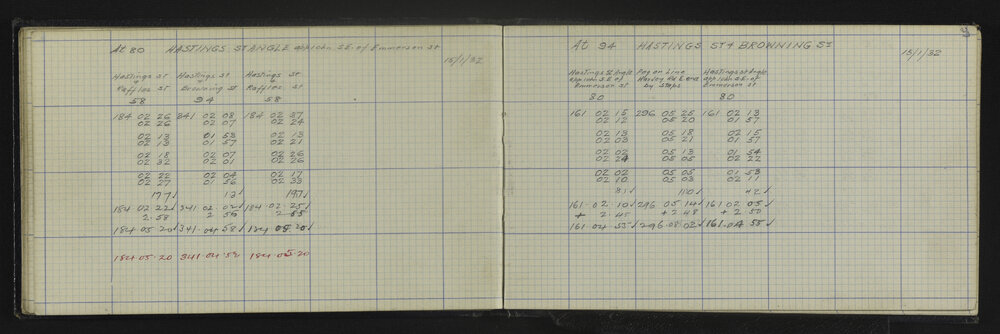 At 80 HASTINGS ST ANGLE approx S.E. of Emmerson St
15/1/32
Hastings St Hastings St Hastings St
& & &
Raffles St Browning St Raffles St
58 94 58
184 02 26 341 02 08 184 02 37
02 26 02 07 02 24
02 13 01 53 02 13
02 13 01 57 02 21
02 18 02 07 02 26
02 32 02 01 02 26
02 22 02 04 02 17
02 27 01 56 02 33
177✓ 13✓ 197✓
184.02.22✓ 341.02.02✓ 184.02.25✓
2.58 2 56 2 55
184.05.20✓ 341.04.58✓ 184 05 20✓
184.05.20 341.04.58 184.05.20
9
At 94 HASTINGS ST & BROWNING ST
15/1/32
Hastings St Angle Peg on Line Hastings St Angle
approx S.E. of Hardey Rd E end approx S.E. of
Emmerson St by Steps Emmerson St
80 80
161 02 15 296 05 25 161 02 13
02 12 05 20 01 57
02 13 05 18 02 15
02 03 05 21 01 57
02 02 05 13 01 54
02 24 05 05 02 22
02 02 05 05 01 53
02 10 05 03 02 11
81✓ 110✓ 42✓
161.02.10✓ 296 05 14✓ 161 02 05✓
+ 2.45 + 2 48 + 2 50
161 04 55✓ 296.08.02✓ 161.04 55✓